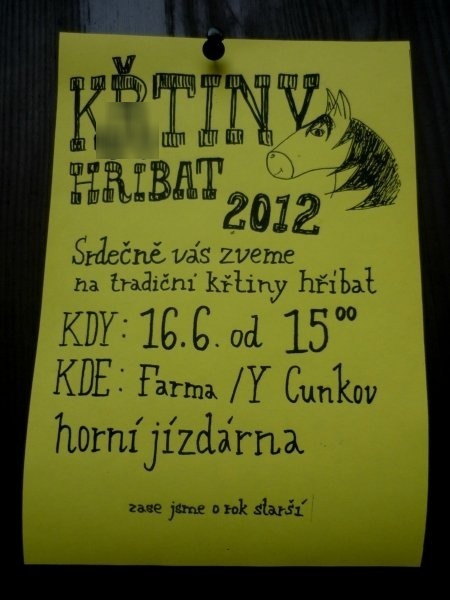 KŘTINY
HŘIBAT
2012
Srdečně vás zveme
na tradiční křtiny hříbat
KDY: 16.6. od 15⁰⁰
KDE: Farma /Y Cunkov
horní jízdárna
zase jsme o rok starší